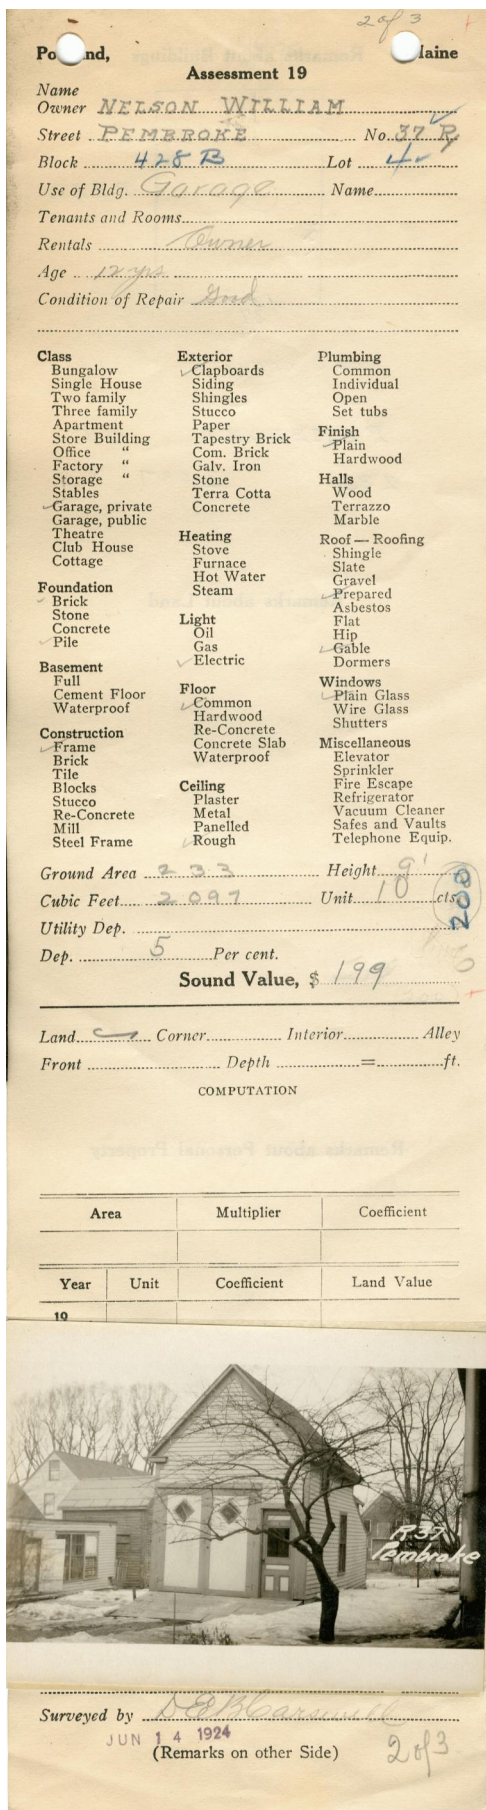 2 of 3
Po nd, Maine
Assessment 19
Name
Owner NELSON WILLIAM
Street PEMBROKE No. 37 R
Block 428 B Lot 4
Use of Bldg. Garage Name
Tenants and Rooms
Rentals Owner
Age 12 yrs
Condition of Repair Good
Class
Bungalow
Single House
Two family
Three family
Apartment
Store Building
Office "
Factory "
Storage "
Stables
Garage, private
Garage, public
Theatre
Club House
Cottage
Foundation
Brick
Stone
Concrete
Pile
Basement
Full
Cement Floor
Waterproof
Construction
Frame
Brick
Tile
Blocks
Stucco
Re-Concrete
Mill
Steel Frame
Exterior
Clapboards
Siding
Shingles
Stucco
Paper
Tapestry Brick
Com. Brick
Galv. Iron
Stone
Terra Cotta
Concrete
Heating
Stove
Furnace
Hot Water
Steam
Light
Oil
Gas
Electric
Floor
Common
Hardwood
Re-Concrete
Concrete Slab
Waterproof
Ceiling
Plaster
Metal
Panelled
Rough
Plumbing
Common
Individual
Open
Set tubs
Finish
Plain
Hardwood
Halls
Wood
Terrazzo
Marble
Roof — Roofing
Shingle
Slate
Gravel
Prepared
Asbestos
Flat
Hip
Gable
Dormers
Windows
Plain Glass
Wire Glass
Shutters
Miscellaneous
Elevator
Sprinkler
Fire Escape
Refrigerator
Vacuum Cleaner
Safes and Vaults
Telephone Equip.
Ground Area 233 Height 9'
Cubic Feet 2097 Unit 10 cts.
200
Utility Dep.
Dep. 5 Per cent.
Sound Value, $ 199
Land Corner Interior Alley
Front Depth = ft.
COMPUTATION
Area Multiplier Coefficient
Year Unit Coefficient Land Value
19
R 37
Pembroke
Surveyed by
JUN 14 1924
(Remarks on other Side)
2 of 3